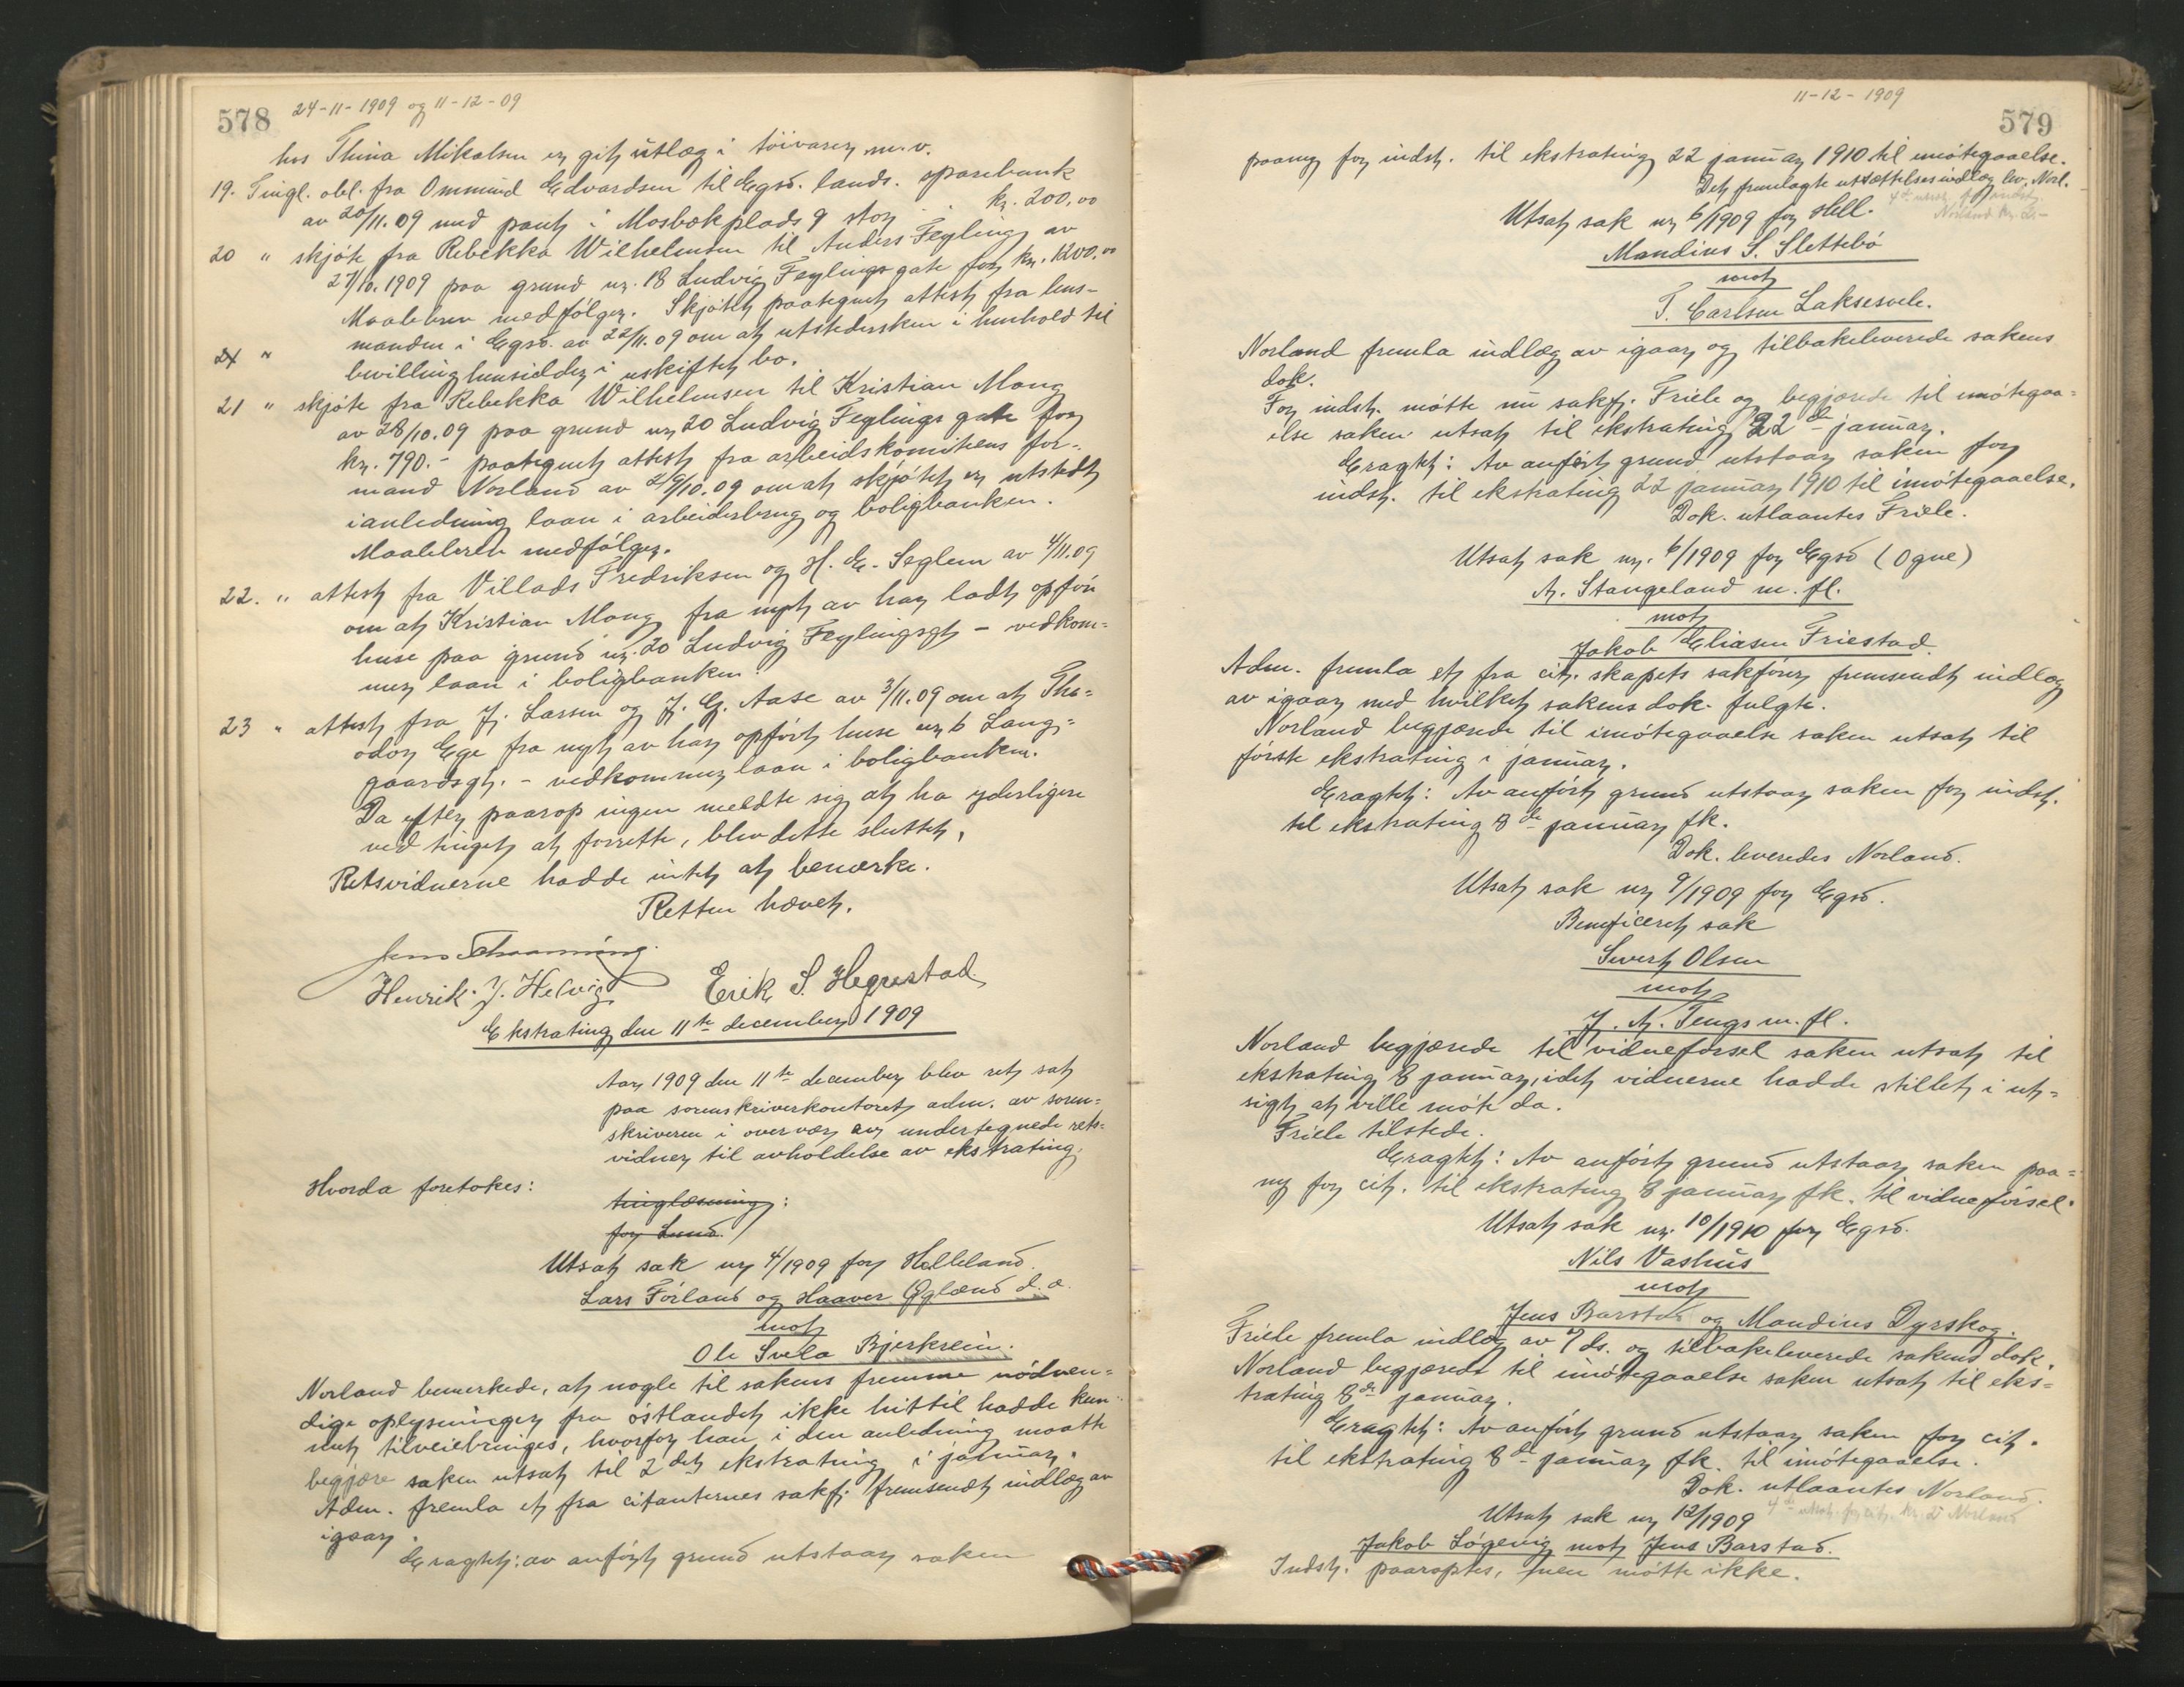 578 24-11-1909 og 11-12-09
hos Thina Mikalsen er git utlæg i töivarer m.v.
19. Tingl. obl. fra Ommund Edvardsen til Egsd. lands. sparebank
av 20/11.09 med pant i Mosbækplads 9 stor . . kr. 200,00
20 " skjöte fra Rebekka Wilhelmsen til Anders Feyling av
27/10.1909 paa grund nr. 18 Ludvig Feylings gate for kr. 1200.00
Maalebrev medfölger. Skjötet paategnet attest fra lens-
manden i Egsd. av 22/11.09 om at utstedersken i henhold til
21 " bevilling hensidder i uskiftet bo.
21 " skjöte fra Rebekka Wilhelmsen til Kristian Mong
av 28/10.09 paa grund nr 20 Ludvig Feylings gate for
kr. 790.- paategnet attest fra arbeidskomiteens for-
mand Norland av 29/10.09 om at skjötet er utstedt
i anledning laan i arbeiderbrug og boligbanken.
Maalebrev medfölger.
22. " attest fra Villads Fredriksen og H. E. Seglem av 4/11.09
om at Kristian Mong fra nyt av har ladt opföre
huse paa grund nr. 20 Ludvig Feylingsgt - vedkom-
mer laan i boligbanken.
23 " attest fra J. Larsen og J. G. Aase av 3/11.09 om at Tha-
odor Ege fra nyt av har opfört huse nr 6 Lang-
gaardsgt. - vedkommer laan i boligbanken.
Da efter paarop ingen meldte sig at ha yderligere
ved tinget at forrette, blev dette sluttet.
Retsvidnerne hadde intet at bemerke.
Retten hævet.
Jens Schanning.
Henrik J. Helvig Erik S. Hegrestad
Ekstrating den 11te december 1909
Aar 1909 den 11te december blev ret sat
paa sorenskriverkontoret adm. av soren-
skriveren i overvær av undertegnede rets-
vidner til avholdelse av ekstrating.
Hvorda foretokes:
tinglæsning:
for Lund.
Utsat sak nr 4/1909 for Helleland.
Lars Förland og Haaver Egeland d. æ.
mot
Ole Svela Bjerkreim.
Norland bemerkede, at nogle til sakens fremme nödven-
dige oplysninger fra östlandet ikke hittil hadde kun-
net tilveiebringes, hvorfor han i den anledning maatte
begjære saken utsat til 2det ekstrating i januar.
Adm. fremla et fra citanternes sakf. fremsendt indlæg av
igaar.
Eragtet: av anfört grund utstaar saken
11-12-1909 579
paany for indst. til ekstrating 22 januar 1910 til imötegaaelse.
Det fremlagte utsættelsesindlæg lev. Norl.
Utsat sak nr 6/1909 for Hell.
Mandius S. Slettebö
mot
T. Carlsen Laksesvele.
Norland fremla indlæg av igaar og tilbakeleverede sakens
dok.
For indst. mötte nu sakf. Friele og begjærede til imötegaa-
else saken utsat til ekstrating 22de januar.
Eragtet: Av anfört grund utstaar saken for
indst. til ekstrating 22 januar 1910 til imötegaaelse.
Dok. utlaantes Friele.
Utsat sak nr. 6/1909 for Egsd (Ogne)
A. Stangeland m. fl.
mot
Jakob Eliasen Friestad.
Adm. fremla et fra cit.skapets sakförer fremsendt indlæg
av igaar med hvilket sakens dok. fulgte.
Norland begjærede til imötegaaelse saken utsat til
förste ekstrating i januar.
Eragtet: Av anfört grund utstaar saken for indst.
til ekstrating 8de januar fk.
Dok. leveredes Norland.
Utsat sak nr 9/1909 for Egsd.
Beneficeret sak
Sivert Olsen
mot
J. A. Tengs m. fl.
Norland begjærede til vidneförsel saken utsat til
ekstrating 8 januar, idet vidnerne hadde stillet i ut-
sigt at ville möte da.
Friele tilstede.
Eragtet: Av anfört grund utstaar saken paa-
ny for cit. til ekstrating 8 januar fk. til vidneförsel.
Utsat sak nr. 10/1910 for Egsd.
Nils Vashus
mot
Jens Barstad og Mandius Dyrskog.
Friele fremla indlæg av 7 ds. og tilbakeleverede sakens dok.
Norland begjærede til imötegaaelse saken utsat til eks-
trating 8de januar.
Eragtet: Av anfört grund utstaar saken for cit.
til ekstrating 8de januar fk. til imötegaaelse.
Dok. utlaantes Norland.
Utsat sak nr 12/1909
Jakob Lögevig mot Jens Barstad.
Indst. paaroptes, men mötte ikke.